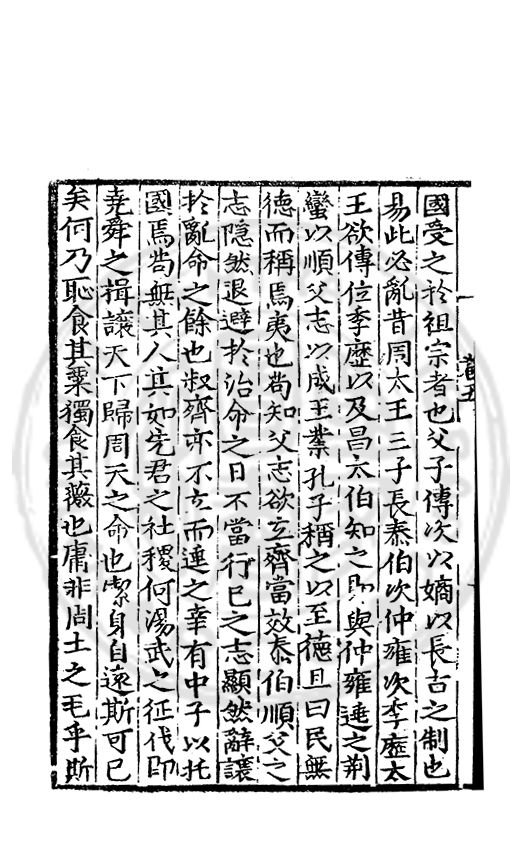 國受之於祖宗者也父子傳次以嫡以長古之制也
易此必亂昔周太王三子長泰伯次仲雍次季歷太
王欲傳位季歷以及昌太伯知之即與仲雍逃之荆
蠻以順父志以成王業孔子稱之以至德且曰民無
德而稱焉夷也苟知父志欲立齊當效泰伯順父之
志隠然退避於治命之日不當行已之志顯然辭讓
於亂命之餘也叔齊亦不立而逃之幸有中子以托
國焉苟無其人其如先君之社稷何湯武之征伐即
堯舜之揖讓天下歸周天之命也潔身自遠斯可已
矣何乃恥食其粟獨食其薇也庸非周土之毛乎斯
卷五